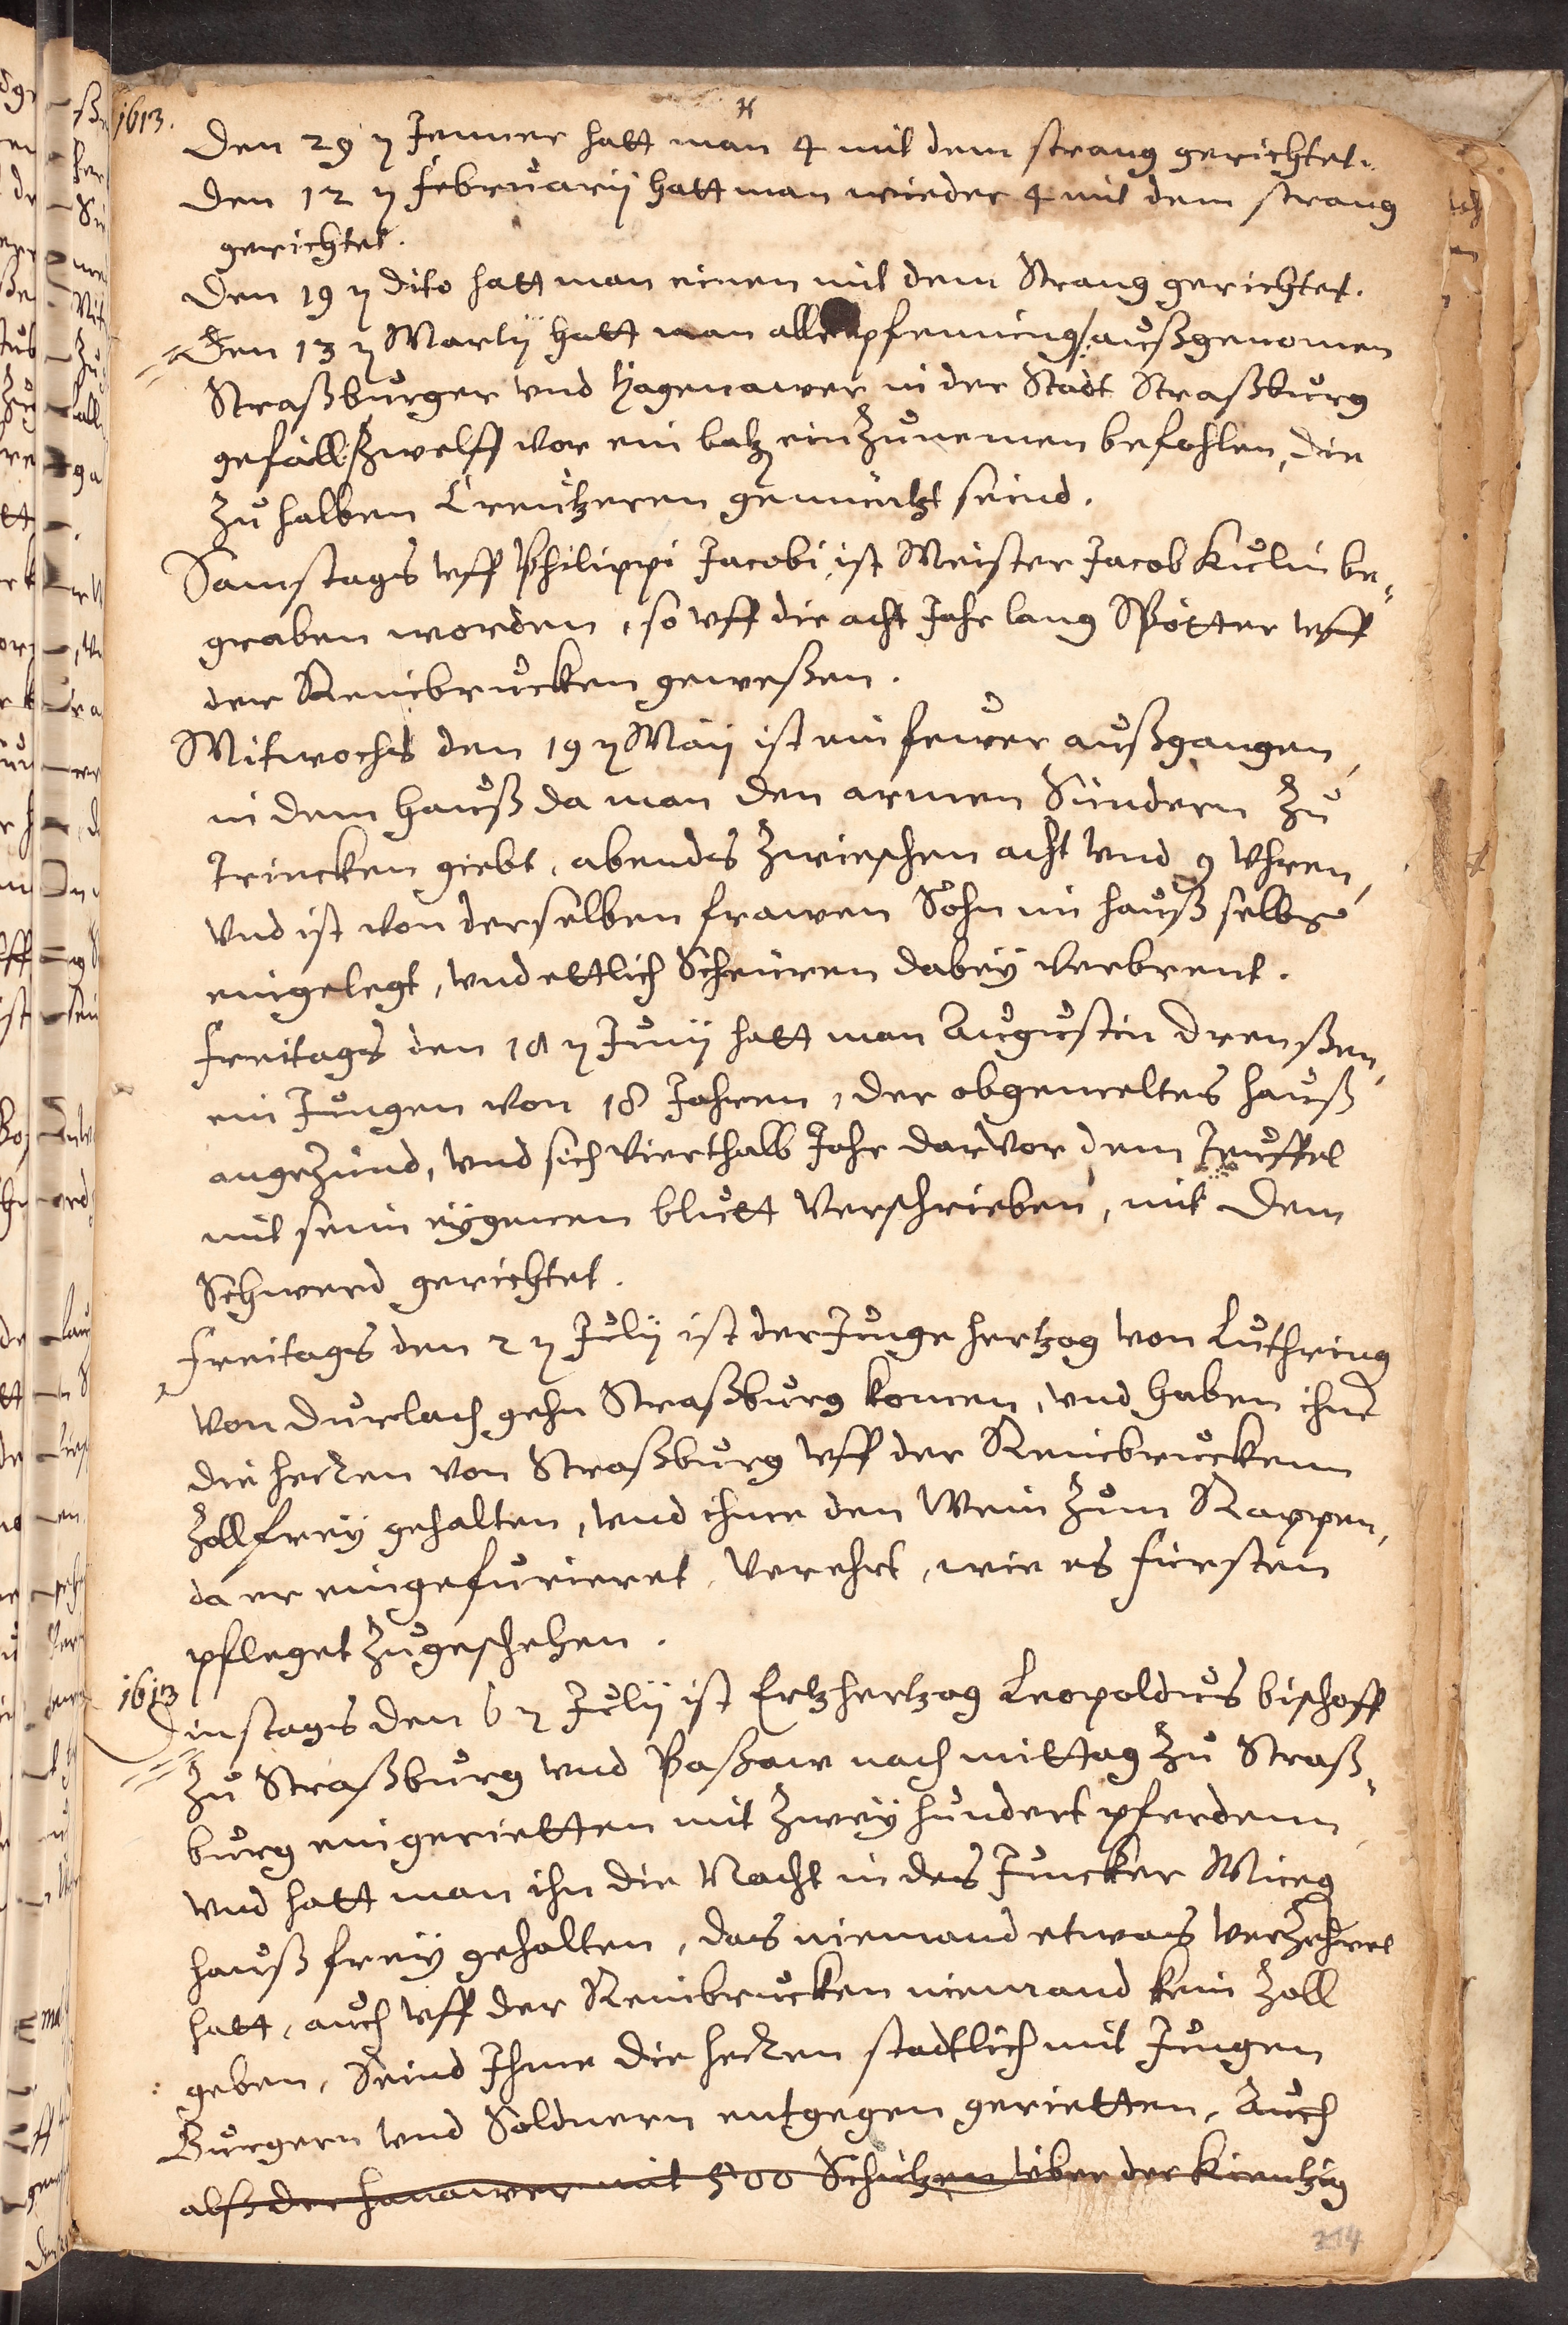 1613.
Den 29 ꝫ Jenner hatt man 4 mit dem strang gerichtet.
Den 12 ꝫ Februarÿ hatt man wieder 4 mit dem strang
gerichtet.
Den 19 ꝫ dito hatt man einen mit dem Strang gerichtet.
Den 13 ꝫ Martÿ hatt man alle pfenning/ außgenomen
Straßburger vnd Hagenawer in der Stadt Straßburg
gefäll/ zwelff vor ein batz einzunemen befohlen, die
zu halben Creutzeren gemüntzt seind.
Samstags vff Philippi Jacobi, ist Meister Jacob Kulin be-
graben worden, so vff die acht Jahr lang Spötter vff
der Reinbrucken geweßen.
Mitwochs den 19 ꝫ Maÿ ist ein fewer außgangen,
in dem Hauß da man den armen Sündern zu
trincken giebt, abends zwischen acht vnd 9 Vhren,
vnd ist von derselben frawen Sohn im hauß selbst
eingelegt, vnd ettlich Scheüren dabeÿ verbrent.
Freitags den 18 ꝫ Junÿ hatt man Augustin Drenßen,
ein Jungen von 18 Jahren, der obgemeltes hauß
angezünd, vnd sich vierthalb Jahr darvor dem Teuffel
mit sein eÿgenen blutt verschrieben, mit dem
Schwerd gerichtet.
Freitags den 2 ꝫ Julÿ ist der Junge hertzog von Luthring
von Durlach gehn Straßburg komen, vnd haben ihne
die herren von Straßburg vff der Reinbruckenn
Zollfreÿ gehalten, vnd ihme den Wein zum Rappen,
da er eingefurieret, verehrt, wie es fürsten
pfleget zugeschehen.
1613
Dinstags den 6 ꝫ Julÿ ist Ertzhertzog Leopoldus bischoff
zu Straßburg vnd Paßaw nach mittag zu Straß-
burg eingerietten mit zweÿ hundert pferdenn
vnd hatt man ihn die Nacht in des Juncker Mieg
hauß freÿ gehalten, das niemand etwas verzehret
hatt, auch vff der Reinbrucken niemand kein Zoll
geben, Seind Ihme die herren stadtlich mit Jungen
Burgern vnd Soldnern entgegen gerietten, Auch
alß der hanawer mit 500 Schützen über der Kientzig
214